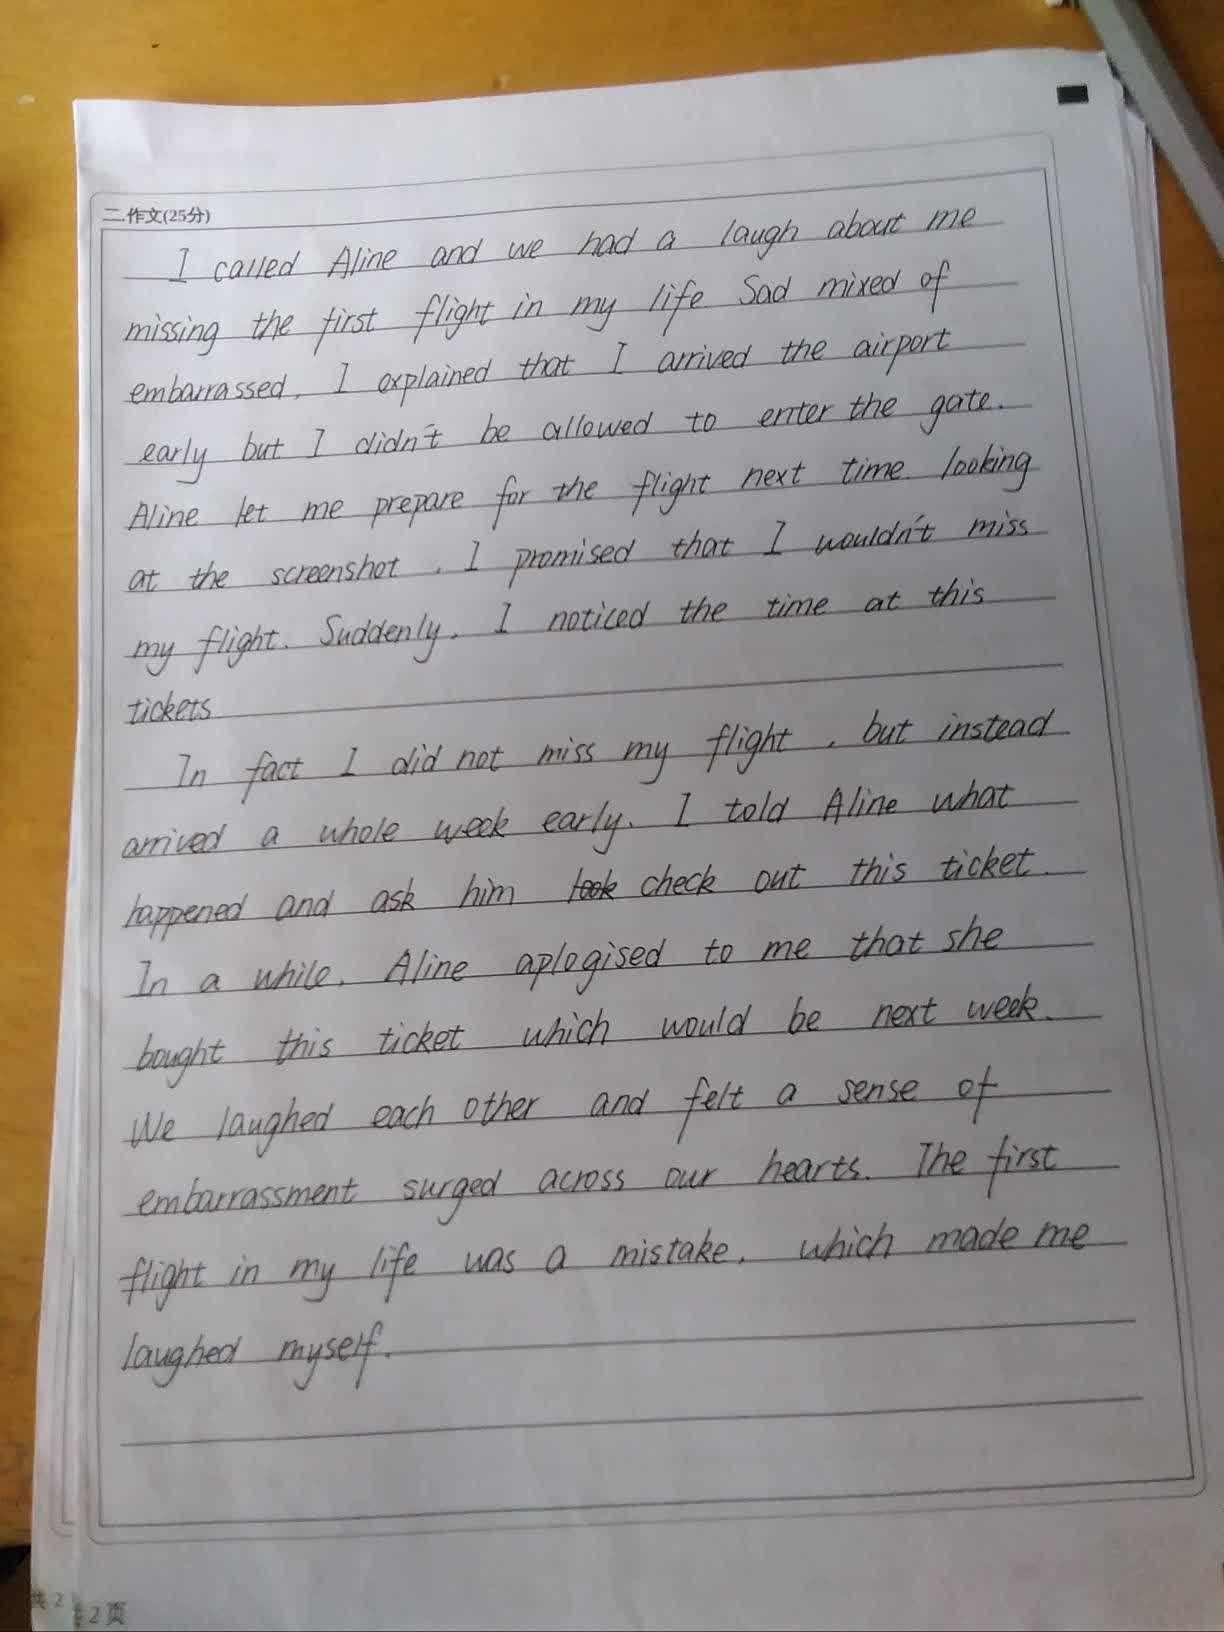 二.作文(25分)
I called Aline and we had a laugh about me
missing the first flight in my life Sad mixed of
embarrassed, I explained that I arrived the airport
early but I didn't be allowed to enter the gate.
Aline let me prepare for the flight next time. looking
at the screenshot, I promised that I wouldn't miss
my flight. Suddenly, I noticed the time at this
tickets
In fact I did not miss my flight, but instead
arrived a whole week early. I told Aline what
happened and ask him look check out this ticket.
In a while, Aline aplogised to me that she
bought this ticket which would be next week.
We laughed each other and felt a sense of
embarrassment surged across our hearts. The first
flight in my life was a mistake, which made me
laughed myself.
共2
2页